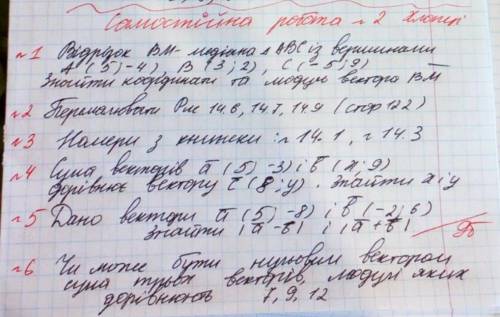 Самостійна робота №2 Хлопці
№1 Відрізок BM - медіана △ ABC із вершинами
A (5;-4), B (3;2), C (-5;9)
Знайти координати та модуль вектора BM
№2 Перемалювати Рис 14.6, 14.7, 14.9 (стор 122)
№3 Номери з книжки: №14.1, №14.3
№4 Сума векторів a (5;-3) і b (x;9)
дорівнює вектору c (8;y). Знайти x і y
№5 Дано вектори a (5;-8) і b (-2;6)
Знайти |a-b| і |a+b|
№6 Чи може бути нульовим вектором
сума трьох векторів, модулі яких
дорівнюють 7, 9, 12